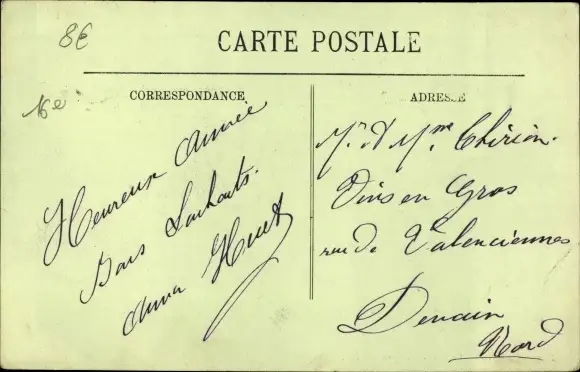 8€
CARTE POSTALE
CORRESPONDANCE
ADRESSE
16e
Heureux Année
Bons Souhaits.
Anna Huet
Mr & Mme Thirion.
Vins en Gros
rue de Valenciennes
Denain
Nord